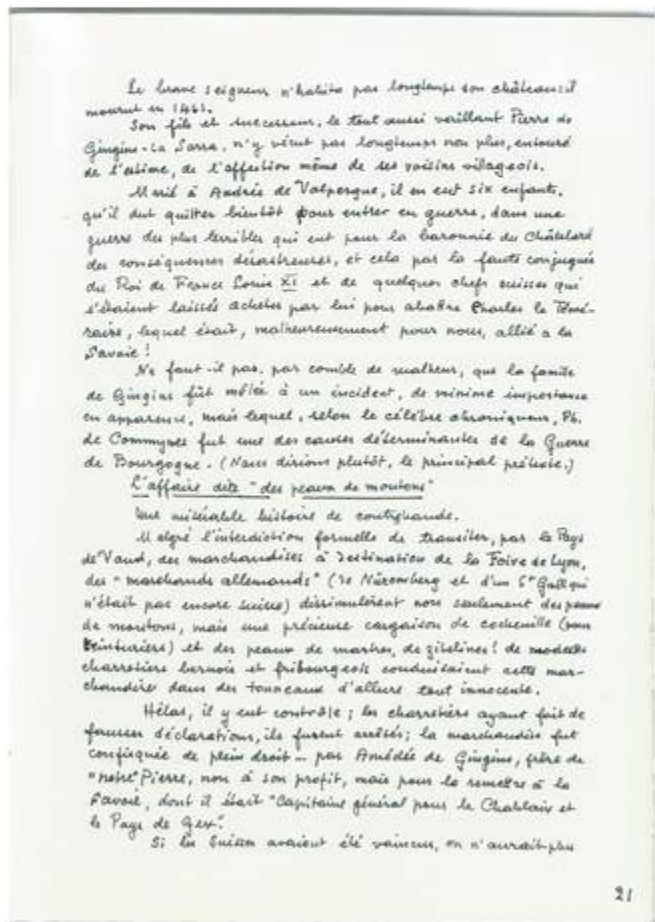 Le brave seigneur n'habita pas longtemps son château: il
mourut en 1461.
Son fils et successeur, le tout aussi vaillant Pierre de
Gingins-La Sarra, n'y vécut pas longtemps non plus, entouré
de l'estime, de l'affection même de ses voisins villageois.
Marié à Andrée de Valpergue, il en eut six enfants,
qu'il dut quitter bientôt pour entrer en guerre, dans une
guerre des plus terribles qui eut pour la baronnie du Châtelard
des conséquences désastreuses, et cela par la faute conjuguée
du Roi de France Louis XI et de quelques chefs suisses qui
s'étaient laissés acheter par lui pour abattre Charles le Témé-
raire, lequel était, malheureusement pour nous, allié a la
Savoie !
Ne faut-il pas, par comble de malheur, que la famille
de Gingins fût mêlée à un incident, de minime importance
en apparence, mais lequel, selon le célèbre chroniqueur, Ph.
de Commynes fut une des causes déterminantes de la Guerre
de Bourgogne. (Nous dirions plutôt, le principal prétexte.)
L'affaire dite "des peaux de moutons"
Une misérable histoire de contrebande.
Malgré l'interdiction formelle de transiter, par le Pays
de Vaud, des marchandises à destination de la Foire de Lyon,
des "marchands allemands" (de Nüremberg et d'un St Gall qui
n'était pas encore suisse) dissimulèrent non seulement des peaux
de moutons, mais une précieuse cargaison de cochenille (pour
teinturiers) et des peaux de martres, de zibelines! de modestes
charretiers bernois et fribourgeois conduisaient cette mar-
chandise dans des tonneaux d'allure tout innocente.
Hélas, il y eut contrôle ; les charretiers ayant fait de
fausses déclarations, ils furent arrêtés; la marchandise fut
confisquée de plein droit - par Amédée de Gingins, frère de
"notre" Pierre, non à son profit, mais pour la remettre à la
Savoie, dont il était "Capitaine général pour le Chablais et
le Pays de Gex".
Si les Suisses avaient été vaincus, on n'aurait plus
21